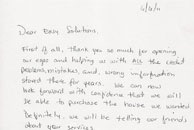 6/4/11
Dear Easy Solutions,
First of all, thank you so much for opening
our eyes and helping us with ALL the credit
problems, mistakes, and, wrong information
stored there for years. We can now
look forward with confidence that we will
be able to purchase the house we wanted
Definitely, we will be telling our friends
about your services